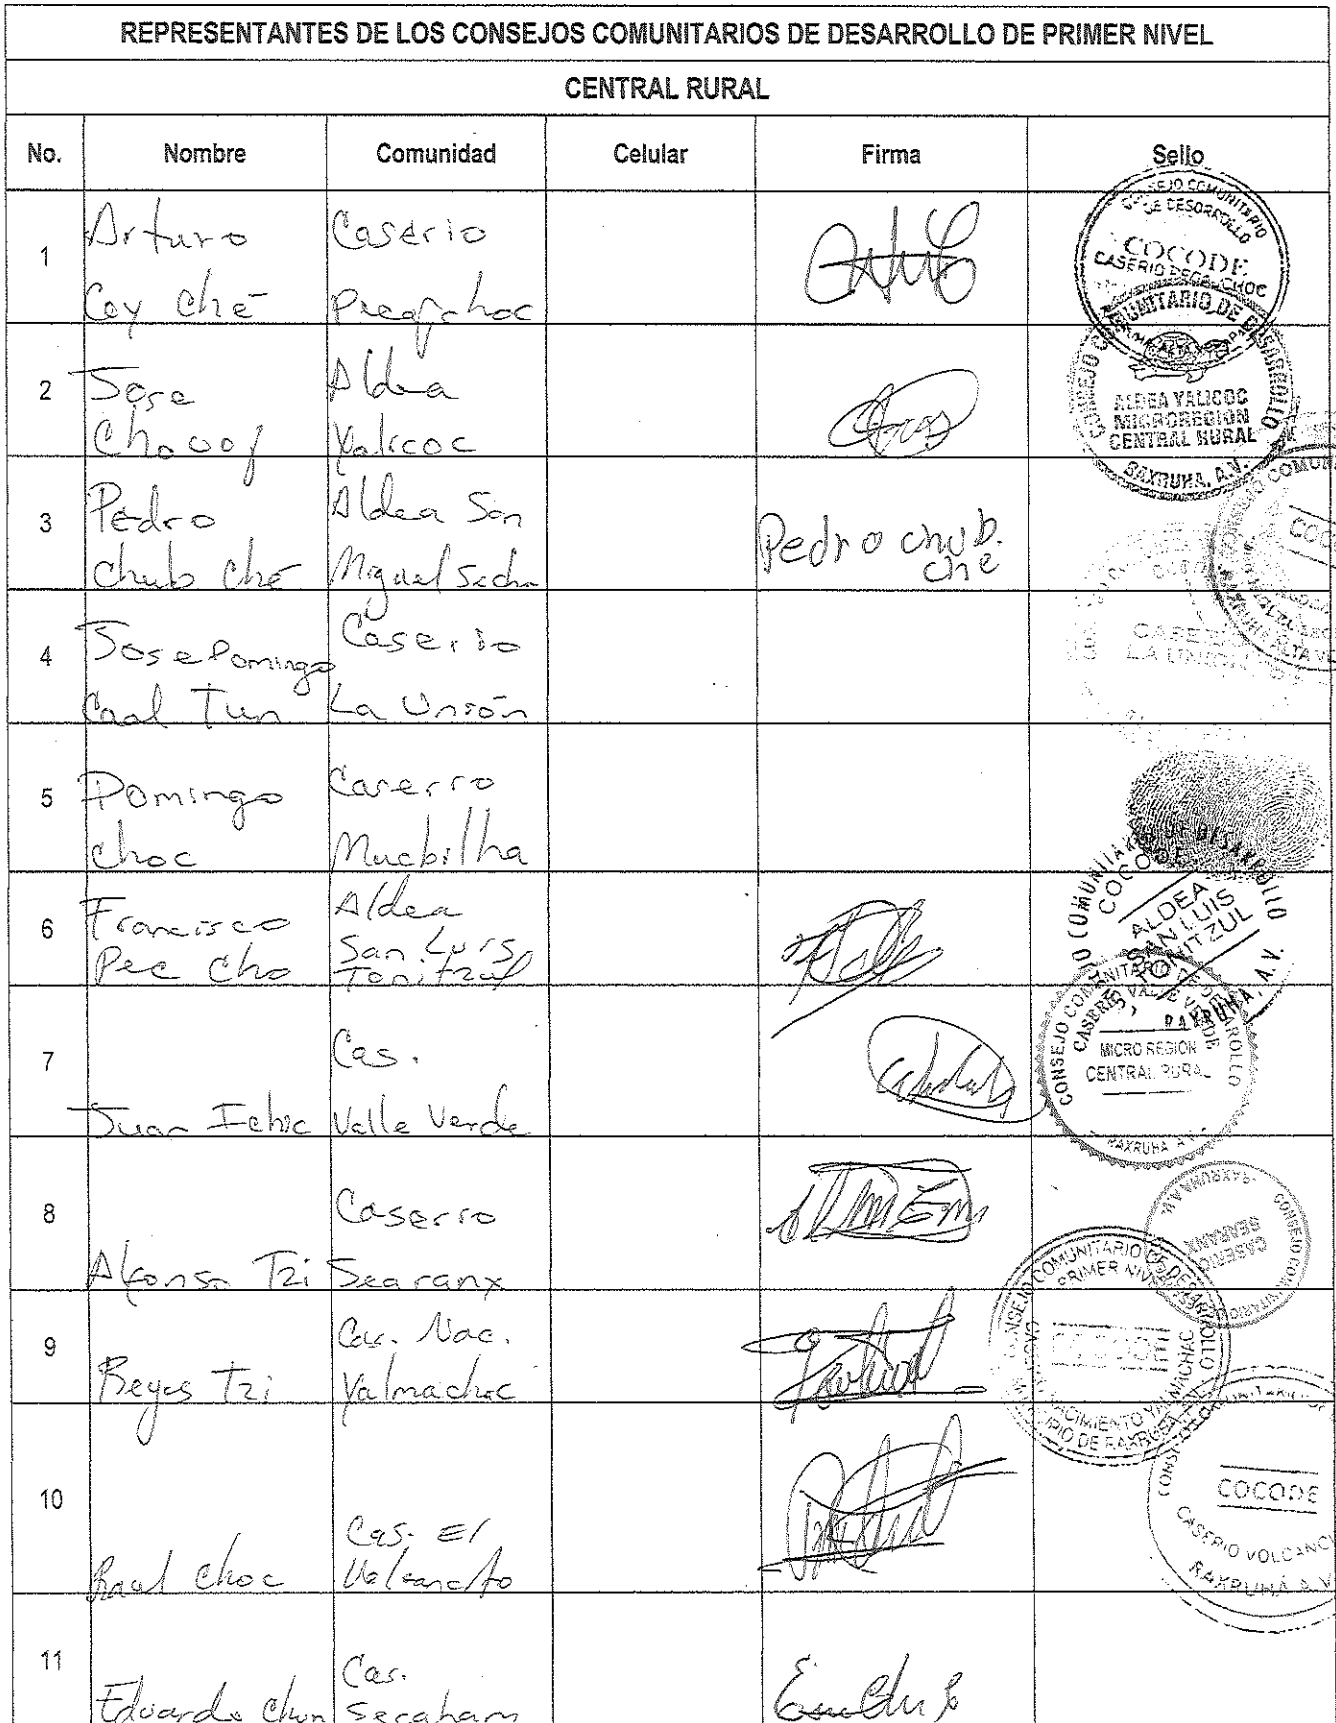 REPRESENTANTES DE LOS CONSEJOS COMUNITARIOS DE DESARROLLO DE PRIMER NIVEL
CENTRAL RURAL
No. Nombre Comunidad Celular Firma Sello
1 Arturo Coy Ché Caserio
CONSEJO COMUNITARIO
DE DESORROLLO
COCODE
CASERIO
2 Jose Aldea Yalicoc
CONSEJO COMUNITARIO DE DESARROLLO
ALDEA YALICOC
MICROREGION
CENTRAL RURAL
RAXRUHA, A.V.
3 Pedro Chub Ché Aldea San Miguel Pedro chub. che
4 Jose Domingo Caal Tun Caserio La Unión
CASERIO
LA UNION
5 Domingo Choc Caserio Mucbilha
6 Francisco Pec Cho Aldea San Luis Tonitzul
COMUNITARIO DE DESARROLLO
COCODE
ALDEA
SAN LUIS
TONITZUL
RAXRUHA, A.V.
7 Juan Ichic Cas. Valle Verde
CONSEJO COMUNITARIO DE DESARROLLO
CASERIO VALLE VERDE
MICRO REGION
CENTRAL RURAL
RAXRUHA A.V.
8 Alfonso Tzi Caserio Searanx
CONSEJO COMUNITARIO
CASERIO
SEARANX
RAXRUHA A.V.
9 Reyes Tzi Cas. Nac. Yalmachac
CONSEJO COMUNITARIO DE DESARROLLO
PRIMER NIVEL
COCODE
NACIMIENTO YALMACHAC
MUNICIPIO DE RAXRUHA, A.V.
10 Raul Choc Cas. El
COCODE
CASERIO
RAXRUHÁ A.V.
11 Eduardo Cas.